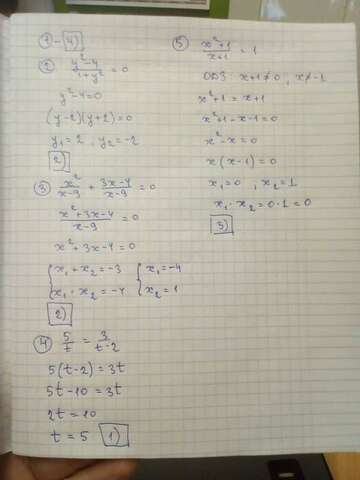 ① - 4)
② y²-4 / 1+y² = 0
y²-4=0
(y-2)(y+2)=0
y₁=2, y₂=-2
2)
③ x² / x-9 + 3x-4 / x-9 = 0
x²+3x-4 / x-9 = 0
x²+3x-4=0
{ x₁+x₂=-3 { x₁=-4
x₁·x₂=-4 x₂=1
2)
④ 5/t = 3/t-2
5(t-2)=3t
5t-10=3t
2t=10
t=5 1)
⑤ x²+1 / x+1 = 1
ОДЗ x+1≠0, x≠-1
x²+1=x+1
x²+1-x-1=0
x²-x=0
x(x-1)=0
x₁=0, x₂=1
x₁·x₂=0·1=0
3)